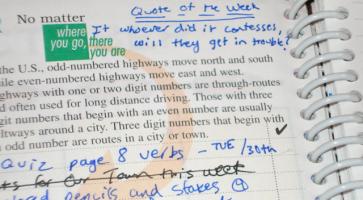 Quote of the Week
No matter
where
you go, there
you are
If whoever did it confesses,
will they get in trouble?
the U.S., odd-numbered highways move north and south
ile even-numbered highways move east and west.
ghways with one or two digit numbers are through-routes
d often used for long distance driving. Those with three
git numbers that begin with an even number are usually
ltways around a city. Three digit numbers that begin with
odd number are routes in a city or town.
Quiz page 8 verbs - TUE /30th
ts for Our Town this week
pencils and